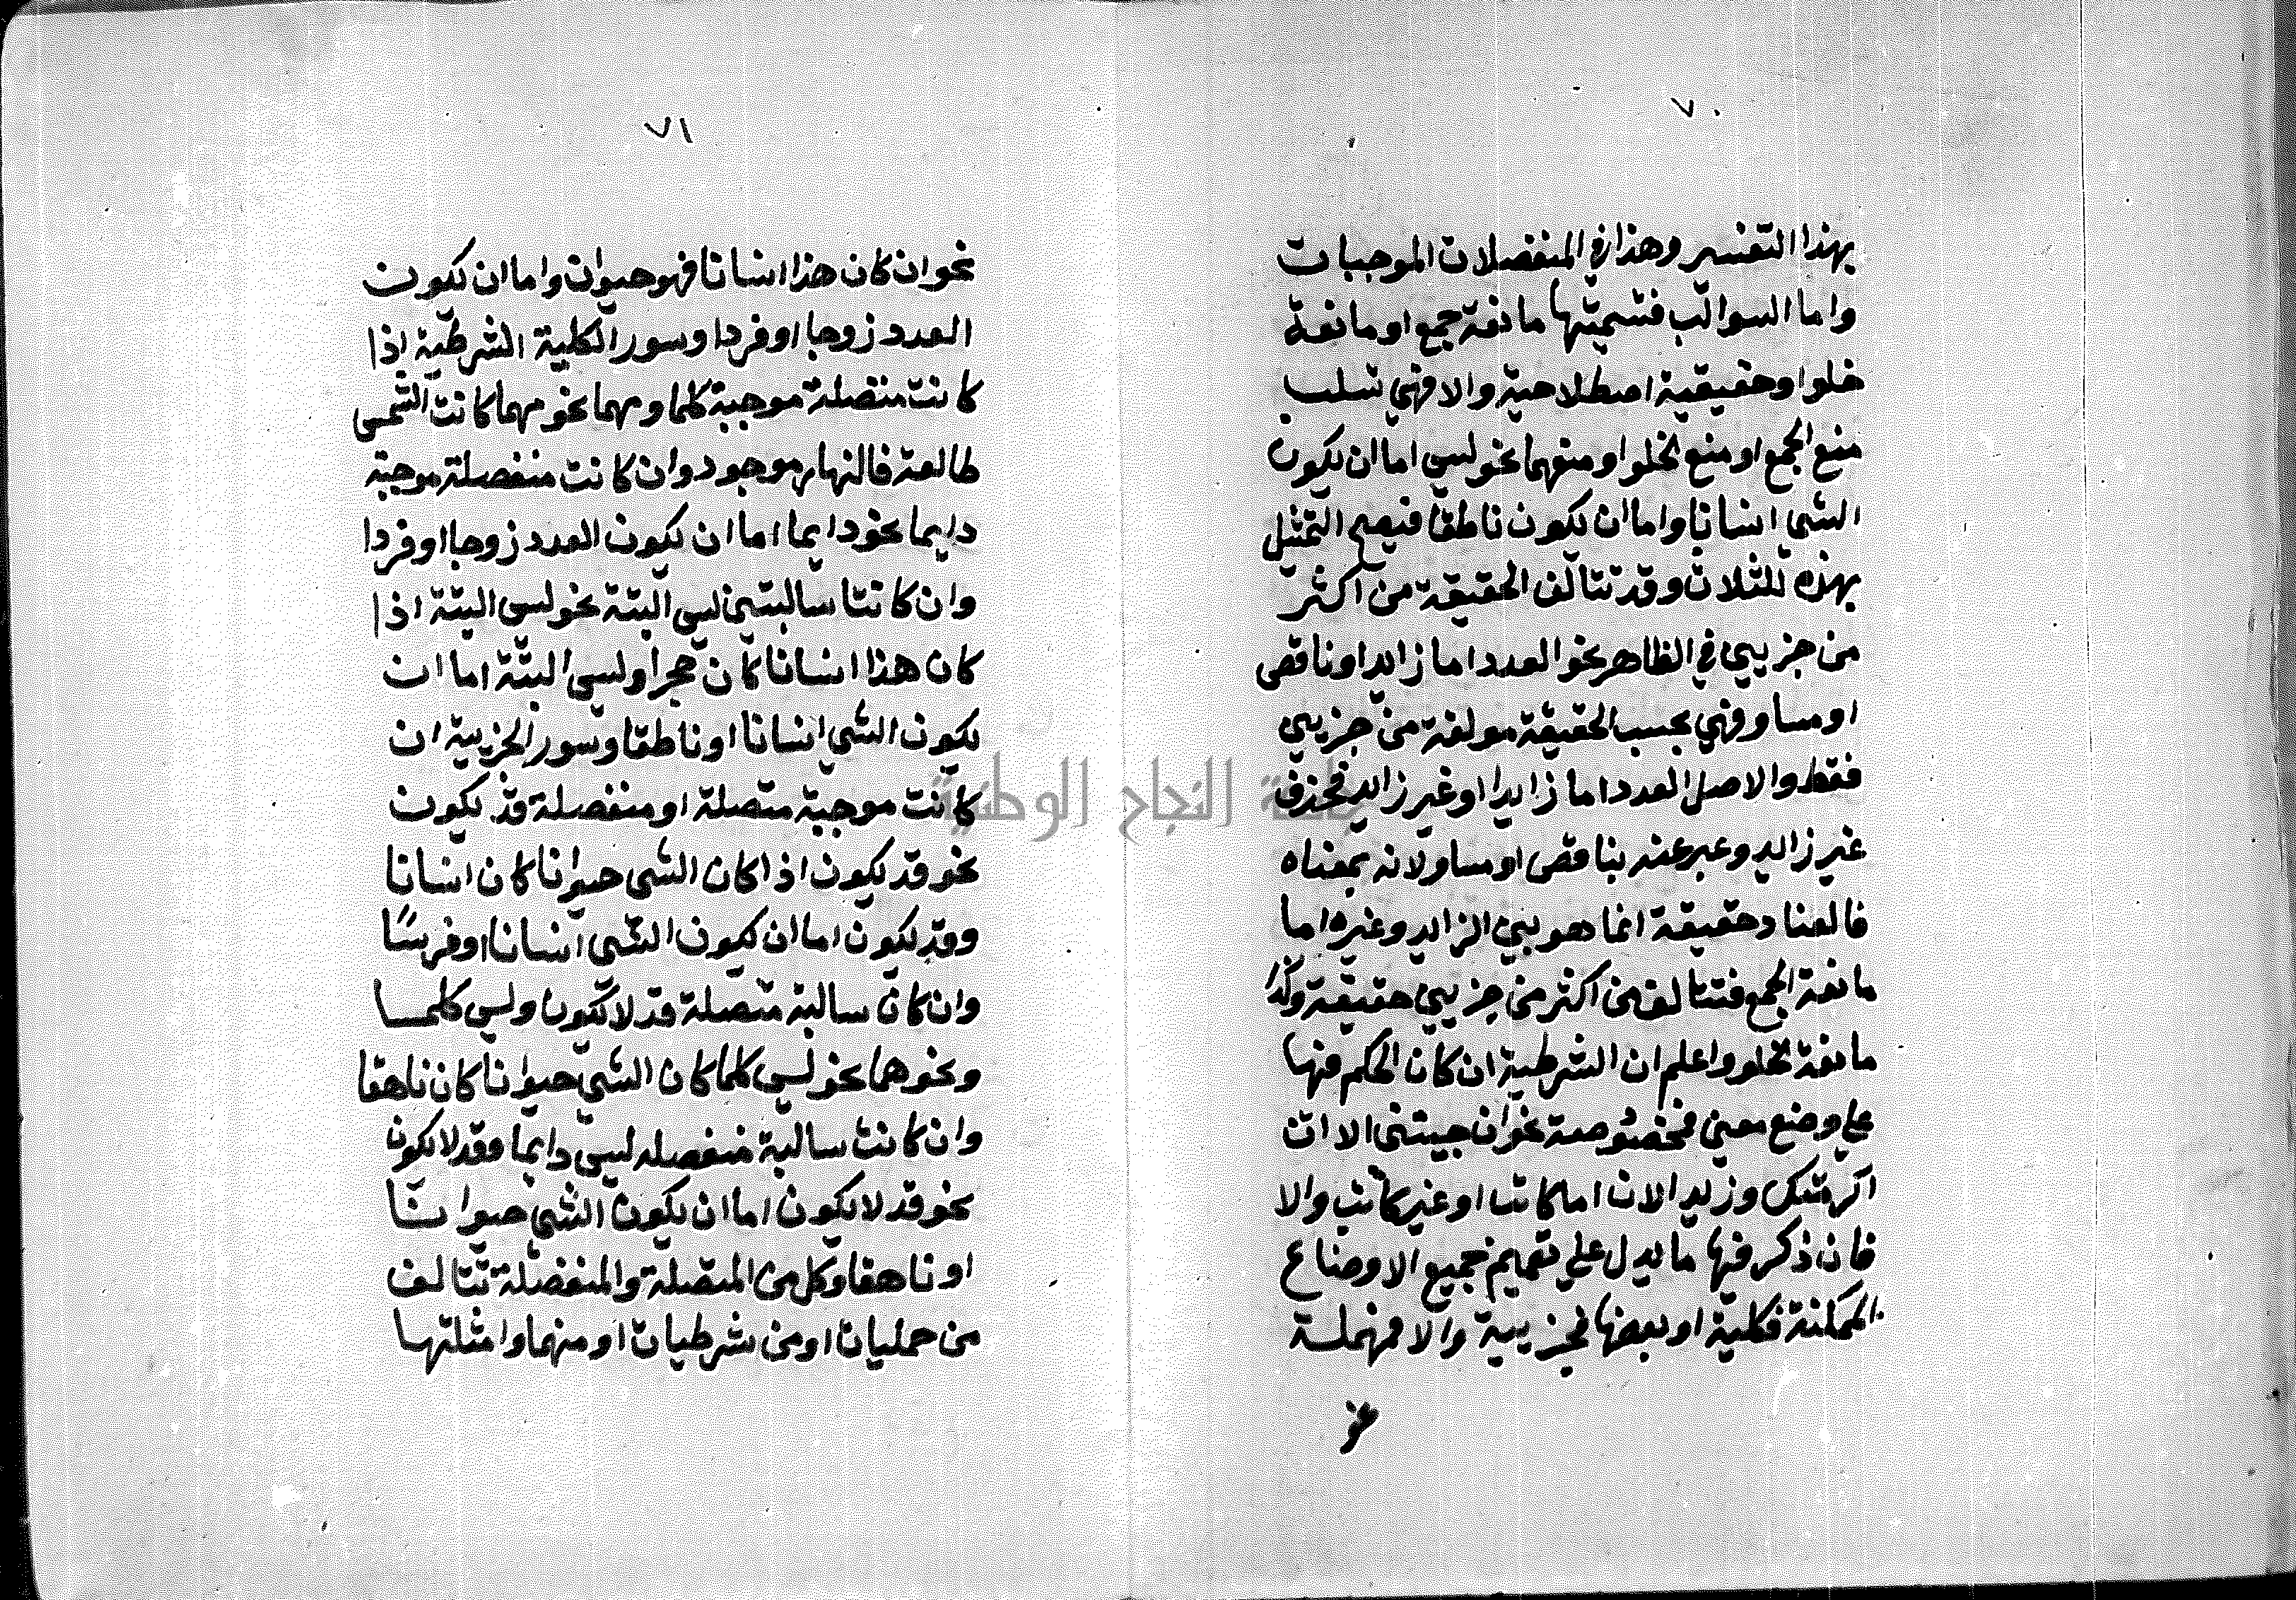 ٧٠
بهذا التفسير وهذا في المنفصلات الموجبات
واما السوالب فتسميتها مانعة جمع او مانعة
خلو او حقيقية اصطلاحية والا فهي تسلب
منع الجمع او منع الخلو او منعهما نحو ليس اما ان يكون
الشي انسانا واما ان يكون ناطقا فيصح التمثيل
بهذه للثلاث وقد تتالف الحقيقة من اكثر
من جزيين في الظاهر نحو العدد اما زايد او ناقص
او مساو فهي بحسب الحقيقة مولفة من جزيين
فقط والاصل العدد اما زايدا او غير زايد فحذف
غير زايد وعبر عنه بناقص او مساو لانه بمعناه
فالعناد حقيقة انما هو بين الزايد وغيره اما
مانعة الجمع فتتالف من اكثر من جزيين حقيقة وكذا
مانعة الخلو واعلم ان الشرطية ان كان الحكم فيها
علي وضع معين فمخصوصة نحو ان جيتني الان
اكرمتك وزيد الان اما كاتب او غير كاتب والا
فان ذكر فيها ما يدل علي تعميم جميع الاوضاع
الممكنة فكلية او بعضها فجزيية والا فمهملة
نحو
٧١
نحو ان كان هذا انسانا فهو حيوان واما ان يكون
العدد زوجا او فردا وسور الكلية الشرطية اذا
كانت متصلة موجبة كلما ومهما نحو مهما كانت الشمس
طالعة فالنهار موجود وان كانت منفصلة موجبة
دايما نحو دايما اما ان يكون العدد زوجا او فردا
وان كانتا سالبتين ليس البتة نحو ليس البتة اذا
كان هذا انسانا كان حجرا وليس البتة اما ان
يكون الشي انسانا او ناطقا وسور الجزيية ان
كانت موجبة متصلة او منفصلة قد يكون
نحو قد يكون اذا كان الشي حيوانا كان انسانا
وقد يكون اما ان يكون الشي انسانا او فرسا
وان كان سالبة متصلة قد لا يكون وليس كلما
ونحوهما نحو ليس كلما كان الشي حيوانا كان ناهقا
وان كانت سالبة منفصله ليس دايما وقد لا يكون
نحو قد لا يكون اما ان يكون الشي حيوانا
او ناهقا وكل من المتصلة والمنفصلة تتالف
من حمليات او من شرطيات او منهما وامثلتها
جامعة النجاح الوطنية